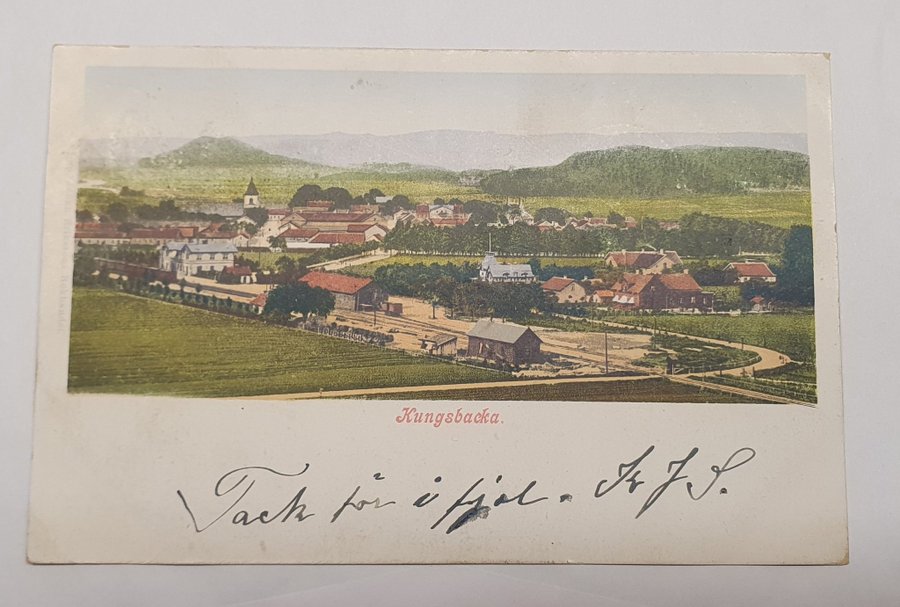 Kungsbacka.
Tack för i fjol. Kr J. S.